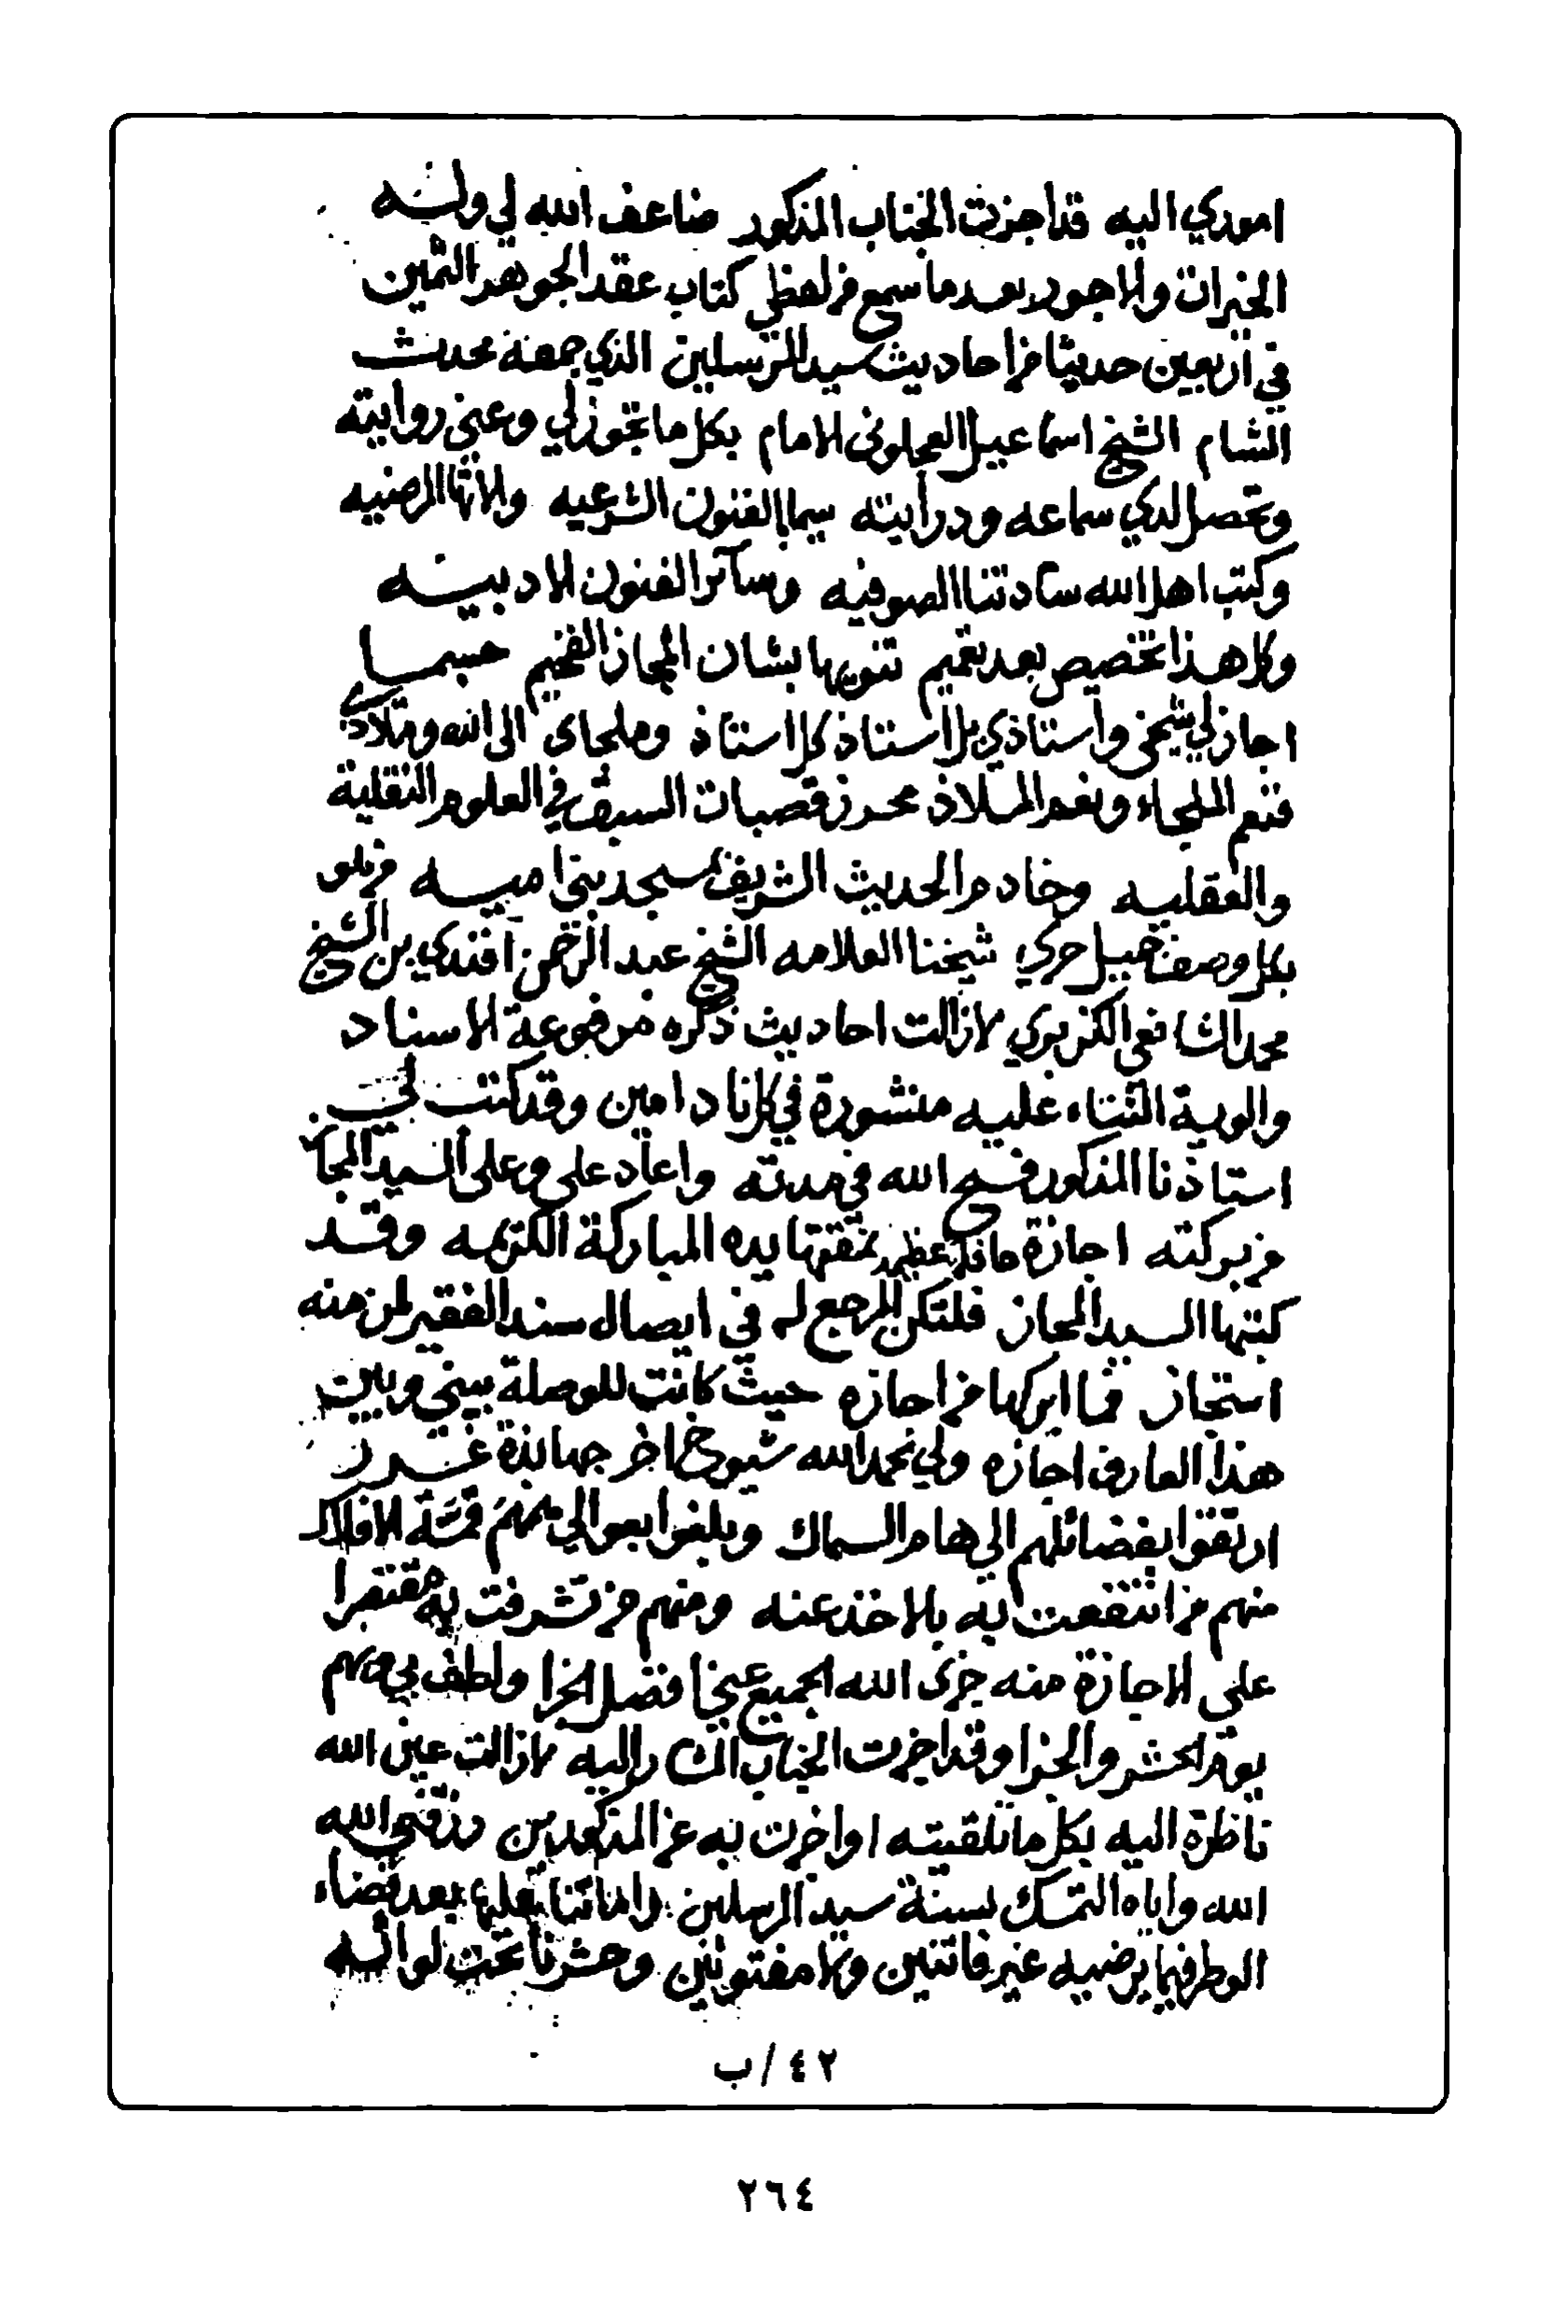 اموري اليه قد اجزت الجناب المذكور ضاعف الله لي وله
الخيرات والاجور بعد ما سمع من لفظي كتاب عقد الجوهر الثمين
في اربعين حديثا من احاديث سيد المرسلين الذي جمعه محدث
الشام الشيخ اسماعيل العجلوني الامام بكل ما تجوز لي وعني روايته
وتحصل لدي سماعه ودرايته سيما الفنون الشرعيه والاثار المرضيه
وكتب اهل الله سادتنا الصوفيه وسائر الفنون الادبيه
وكل هذا تخصيص بعد تعميم تنويها بشان المجاز الفخيم حسبما
اجازني شيخي واستاذي بل استاذ كل استاذ وملجاى الى الله وملاذي
فنعم الملجاء ونعم الملاذ محرز قصبات السبق في العلوم النقلية
والعقليه وخادم الحديث الشريف بمسجد بني اميه من هو
بكل وصف جميل حري شيخنا العلامه الشيخ عبد الرحمن افندي بن الشيخ
محمد الشافعي الكزبري لازالت احاديث ذكره مرفوعة الاسناد
والوية الثناء عليه منشورة في كل ناد امين وقد كتب لي
استاذنا المذكور فسح الله في مدته واعاد علي وعلى السيد المجاز
من بركته اجازة حافلة عظيمه نمقتها يده المباركة الكريمه وقد
كتبها السيد المجاز فلتكن المرجع له في ايصال سند الفقير لمن منه
استجاز فما ابركها من اجازه حيث كانت للوصلة بيني وبين
هذا العارف اجازه ولي بحمد الله شيوخ اخر جهابذة غرر
ارتقوا بفضائلهم الى هام السماك وبلغوا بعوالي هممهم قمة الافلاك
منهم من انتفعت به بالاخذ عنه ومنهم من تشرفت به مقتصرا
على الاجازة منه جزى الله الجميع عني افضل الجزا ولطف بي وبهم
يوم الحشر والجزا وقد اجزت الجناب المشار اليه لازالت عين الله
ناظرة اليه بكل ما تلقيته او اجزت به عن المذكورين رزقني الله
الله واياه التمسك بسنة سيد المرسلين واماتنا عليها بعد قضاء
الوطر فيما يرضيه غير فاتنين ولا مفتونين وحشرنا تحت لوائه
٤٢/ب
٢٦٤